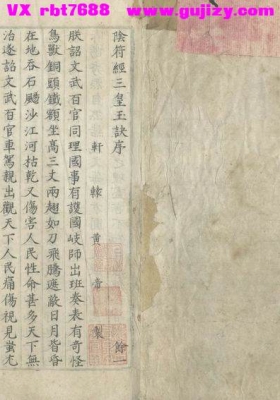 VX rbt7688  www.gujizy.com
陰符經三皇玉訣序
軒轅黃帝製
朕詔文武百官同理國事有護國岐師出班奏表有奇怪
鳥獸銅頭鐵額坐高三丈兩翅如刀飛騰遮蔽日月皆昏
在地吞石颺沙江河枯乾又傷害人民性命甚多天下無
治遂詔文武百官車駕親出觀天下人民痛傷視見蚩尤